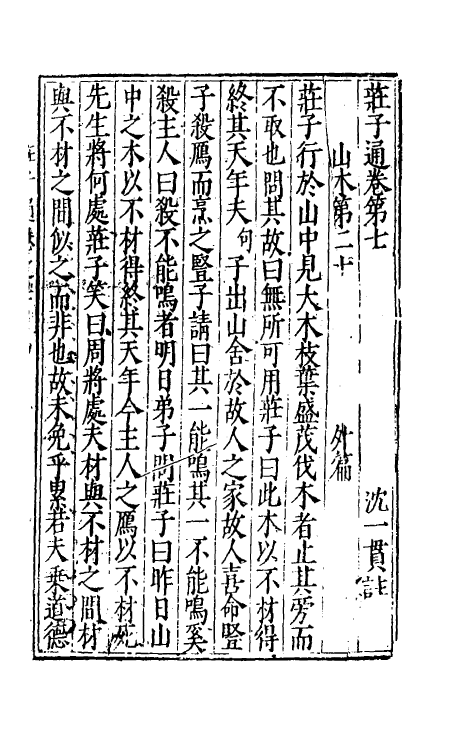 莊子通卷第七 沈一貫註
山木第二十 外篇
莊子行於山中見大木枝葉盛茂伐木者止其旁而
不取也問其故曰無所可用莊子曰此木以不材得
終其天年夫句子出山舍於故人之家故人喜命豎
子殺鴈而烹之豎子請曰其一能鳴其一不能鳴奚
殺主人曰殺不能鳴者明日弟子問莊子曰昨日山
中之木以不材得終其天年今主人之鴈以不材死
先生將何處莊子笑曰周將處夫材與不材之間材
與不材之間似之而非也故未免乎累若夫乘道德